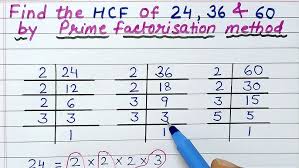 Find the HCF of 24, 36 & 60
by Prime factorisation method
2 | 24 2 | 36 2 | 60
2 | 12 2 | 18 2 | 30
2 | 6 3 | 9 3 | 15
3 | 3 3 | 3 5 | 5
1 1 1
24 = 2 × 2 × 2 × 3